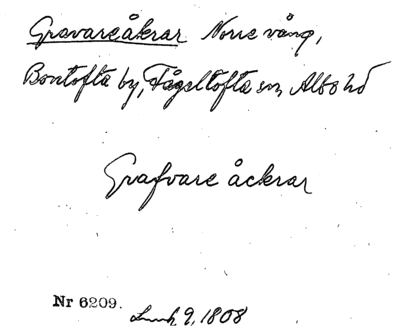 Gravareåkrar Norre vång,
Bontofta by, Fågeltofta sn, Albo hd
Grafvare åckrar
Nr 6209. Lmk 9, 1808